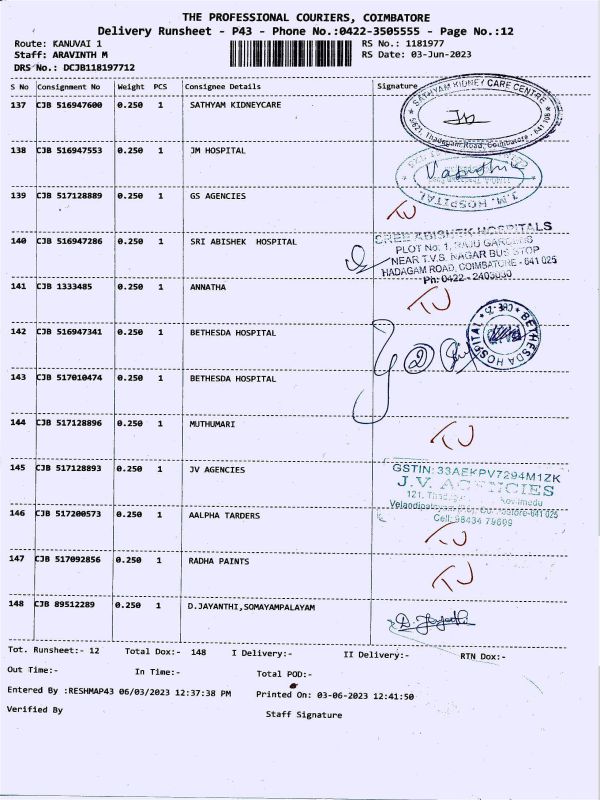 THE PROFESSIONAL COURIERS, COIMBATORE
Delivery Runsheet - P43 - Phone No.:0422-3505555 - Page No.:12
Route: KANUVAI 1 RS No.: 1181977
Staff: ARAVINTH M RS Date: 03-Jun-2023
DRS No.: DCJB118197712
S No Consignment No Weight PCS Consignee Details Signature
137 CJB 516947600 0.250 1 SATHYAM KIDNEYCARE
SATHYAM KIDNEY CARE CENTRE
5/621, Thadagam Road, Coimbatore - 641 108
138 CJB 516947553 0.250 1 JM HOSPITAL
J.M. HOSPITAL
139 CJB 517128889 0.250 1 GS AGENCIES
TJ
140 CJB 516947286 0.250 1 SRI ABISHEK HOSPITAL
SREE ABISHEK HOSPITALS
PLOT No: 1, RAJU GARDENS
NEAR T.V.S. NAGAR BUS STOP
HADAGAM ROAD, COIMBATORE - 641 025
Ph: 0422 - 2403030
141 CJB 1333485 0.250 1 ANNATHA
TJ
142 CJB 516947341 0.250 1 BETHESDA HOSPITAL
BETHESDA HOSPITAL
143 CJB 517010474 0.250 1 BETHESDA HOSPITAL
144 CJB 517128896 0.250 1 MUTHUMARI
TJ
145 CJB 517128893 0.250 1 JV AGENCIES
GSTIN: 33AEKPV7294M1ZK
J.V. AGENCIES
121, Kovilmedu
Velandipalayam
641 025
Cell: 98434 79609
146 CJB 517200573 0.250 1 AALPHA TARDERS
TJ
147 CJB 517092856 0.250 1 RADHA PAINTS
TJ
148 CJB 89512289 0.250 1 D.JAYANTHI,SOMAYAMPALAYAM
D. Jayanthi
Tot. Runsheet:- 12 Total Dox:- 148 I Delivery:- II Delivery:- RTN Dox:-
Out Time:- In Time:- Total POD:-
Entered By :RESHMAP43 06/03/2023 12:37:38 PM Printed On: 03-06-2023 12:41:50
Verified By Staff Signature